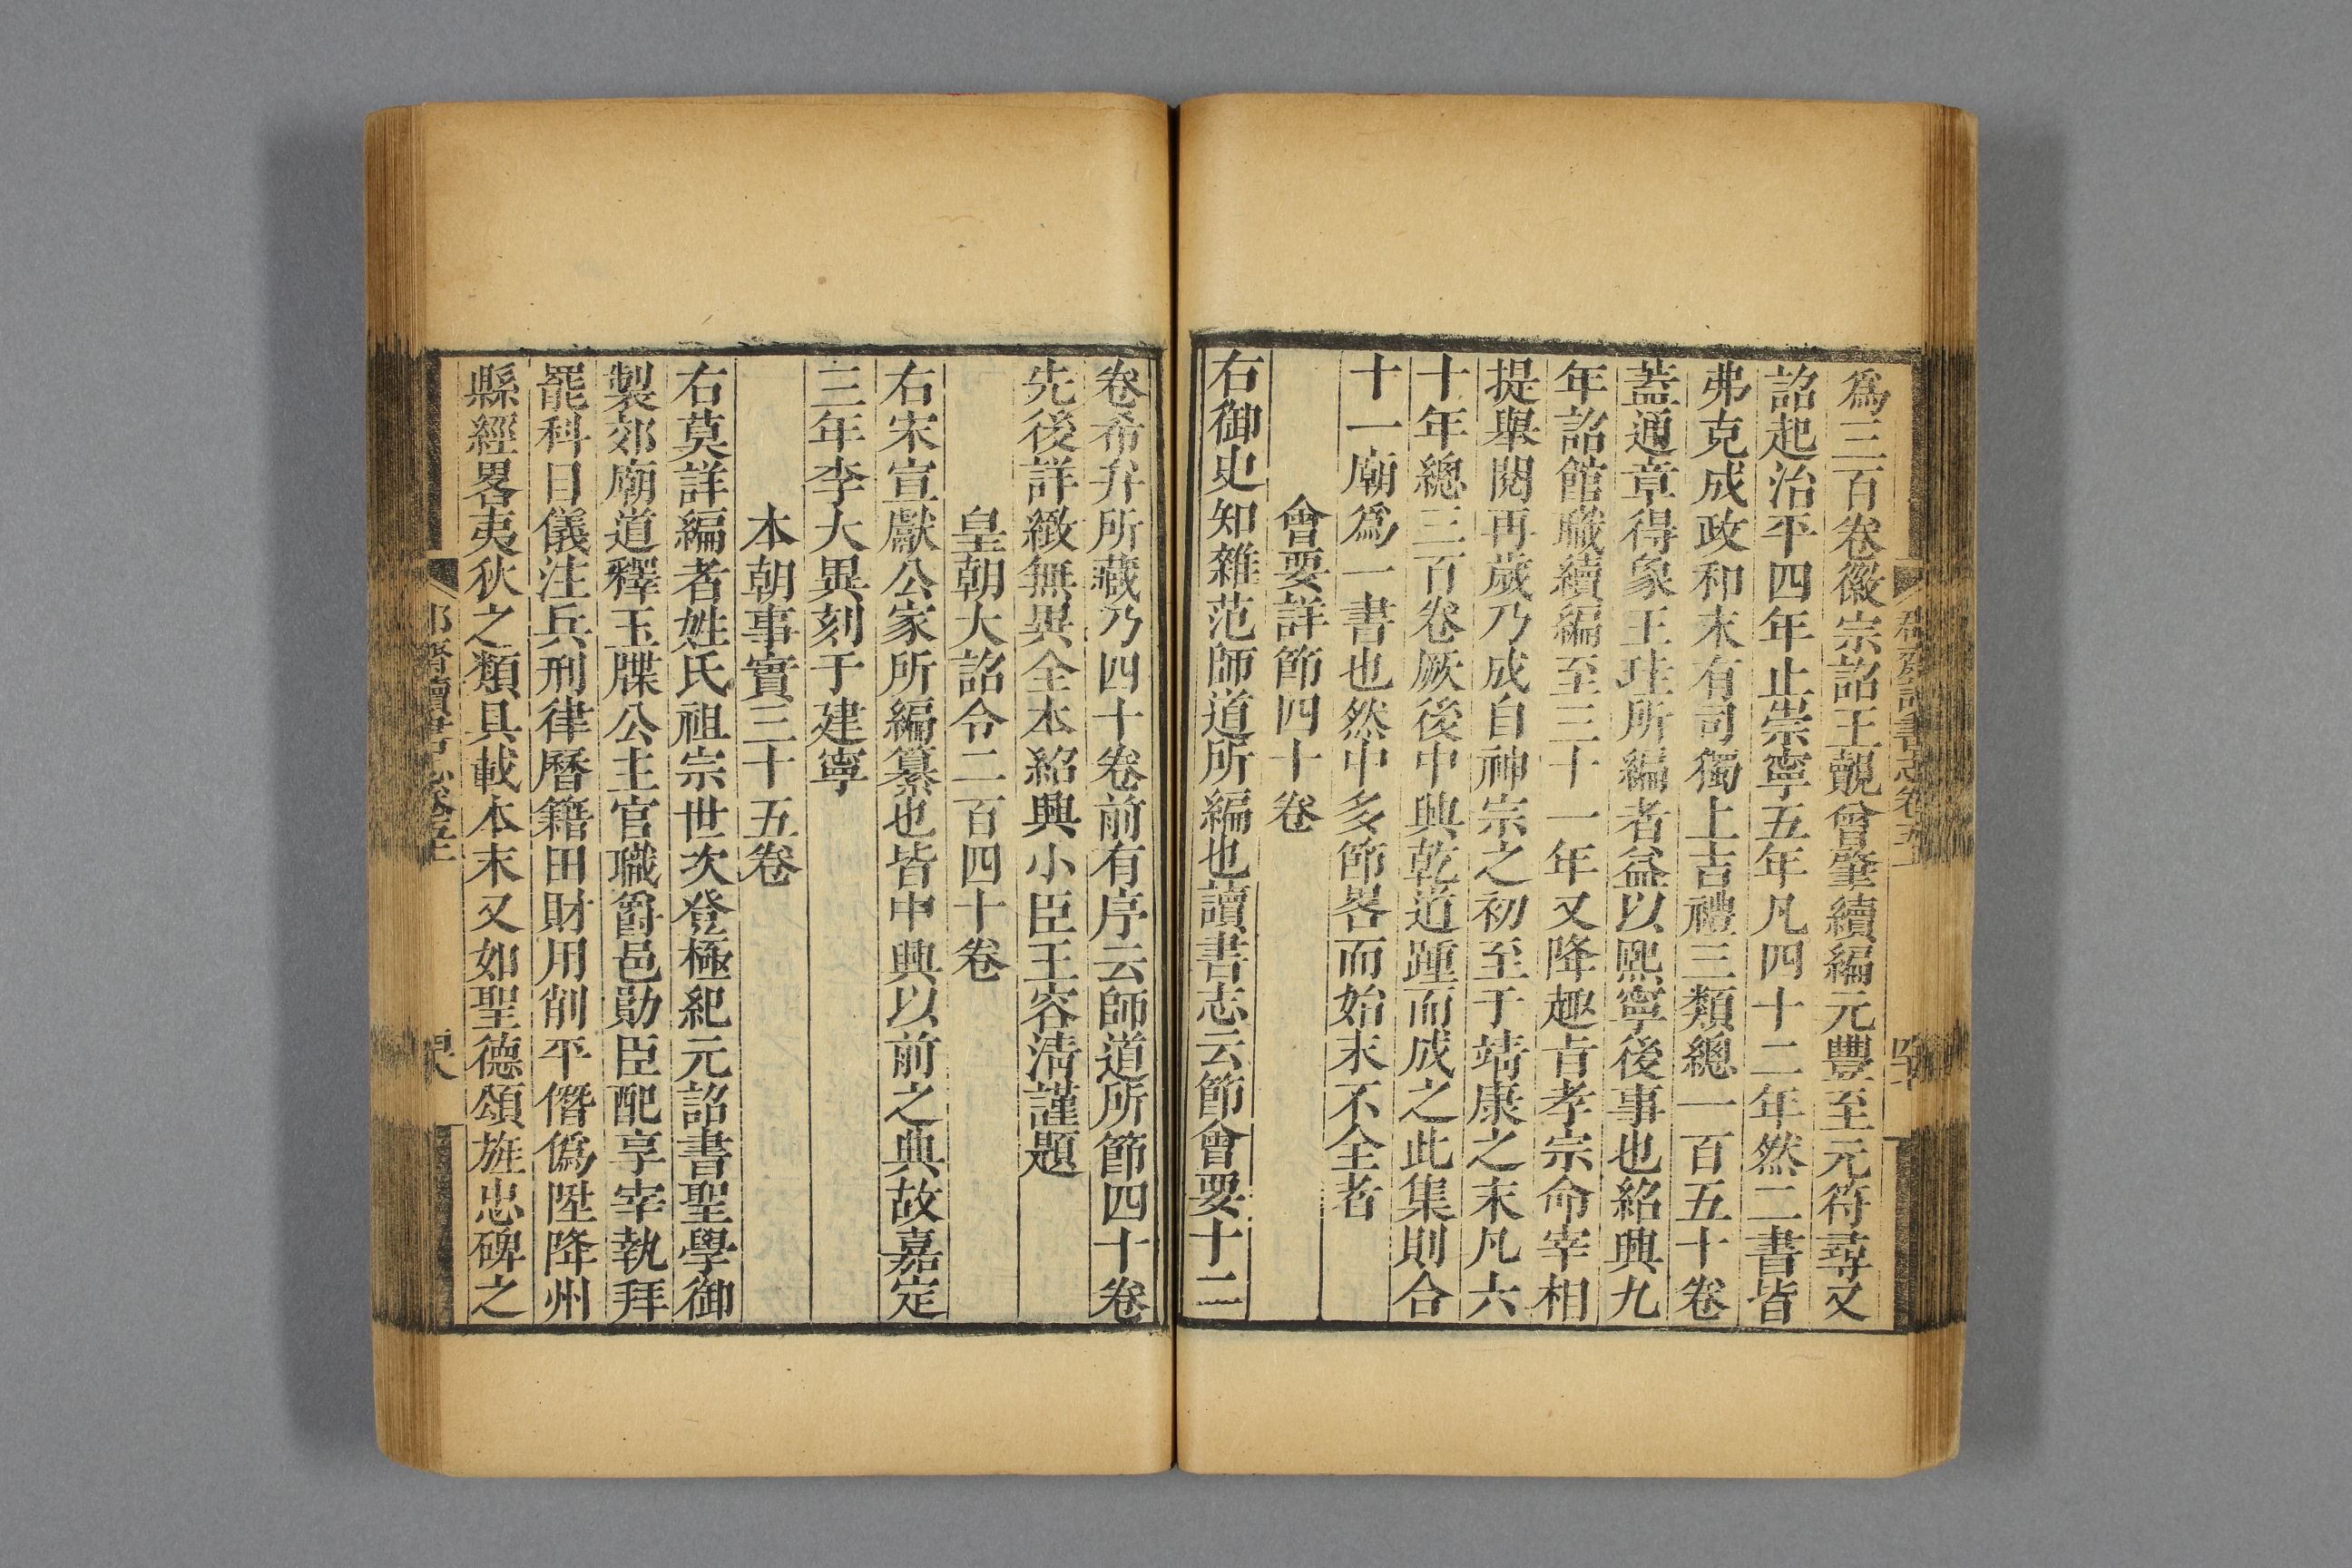 爲三百卷徽宗詔王覿曾肇續編元豐至元符尋又
詔起治平四年止崇寧五年凡四十二年然二書皆
弗克成政和末有司獨上吉禮三類總一百五十卷
蓋通章得象王珪所編者益以熙寧後事也紹興九
年詔館職續編至三十一年又降趣旨孝宗命宰相
提舉閱再歲乃成自神宗之初至于靖康之末凡六
十年總三百卷厥後中興乾道踵而成之此集則合
十一廟爲一書也然中多節畧而始末不全者
會要詳節四十卷
右御史知雜范師道所編也讀書志云節會要十二
卷希弁所藏乃四十卷前有序云師道所節四十卷
先後詳緻無異全本紹興小臣王容淸謹題
皇朝大詔令二百四十卷
右宋宣獻公家所編纂也皆中興以前之典故嘉定
三年李大異刻于建寧
本朝事實三十五卷
右莫詳編者姓氏祖宗世次登極紀元詔書聖學御
製郊廟道釋玉牒公主官職爵邑勛臣配享宰執拜
罷科目儀注兵刑律曆籍田財用削平僭僞陞降州
縣經畧夷狄之類具載本末又如聖德頌旌忠碑之